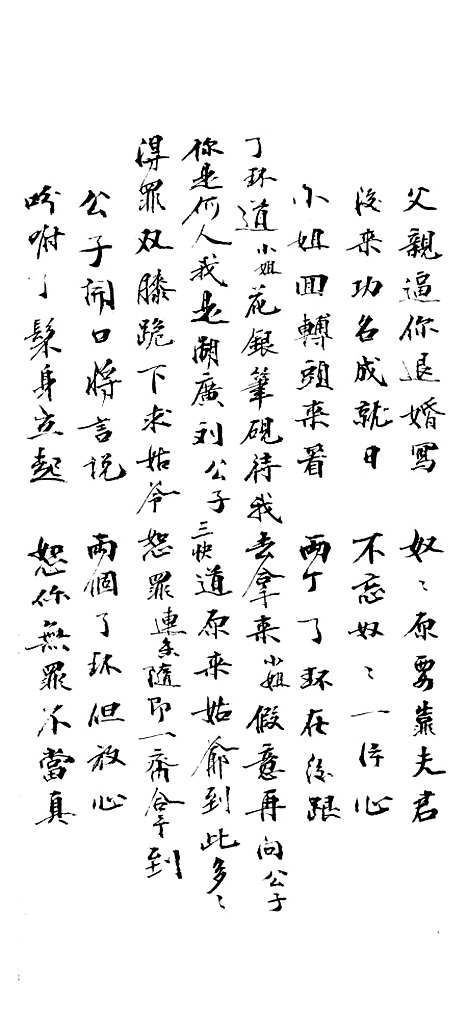 父親逼你退婚寫　奴〻原要靠夫君
後来功名成就日　不忘奴〻一片心
小姐回轉頭来看　两个了环在後跟
丁环道小姐花銀筆硯待我去拿来小姐假意再问公子
你是何人我是湖廣刘公子三快道原来姑爺到此多〻
得罪双膝跪下求姑爷恕罪連条隨即一齊合于到
公子開口將言説　两個了环但放心
吩咐了鬟身立起　恕你無罪不當真